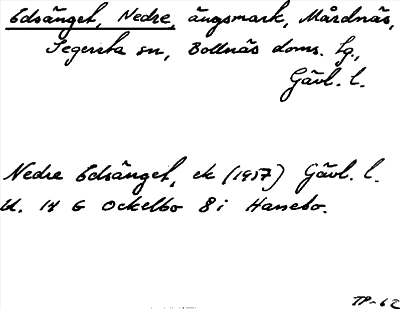 Edsänget, Nedre, ängsmark, Mårdnäs,
Segersta sn, Bollnäs doms. lg.,
Gävl. l.
Nedre Edsänget, ek (1957) Gävl. l.
bl. 14 G Ockelbo 8 i Hanebo.
TP-62